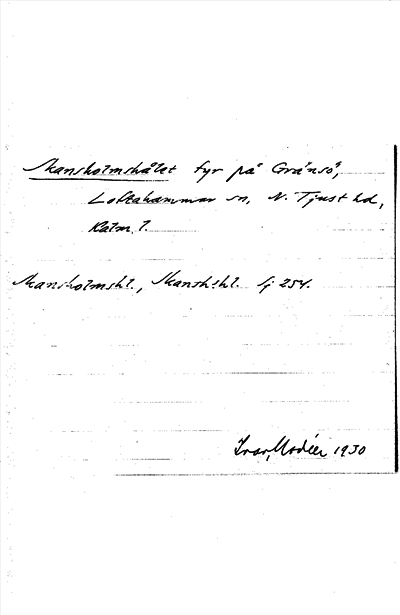 Skansholmshålet fyr på Gränsö,
Loftahammar sn, N. Tjust hd,
Kalm. l.
Skansholmshl., Skanshshl. Sj 254.
Ivar Modéer 1930